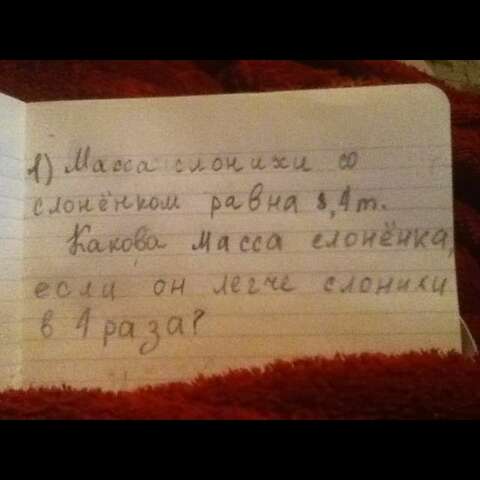 1) Масса слонихи со
слонёнком равна 8,4т.
Какова масса слонёнка,
если он легче слонихи
в 4 раза?